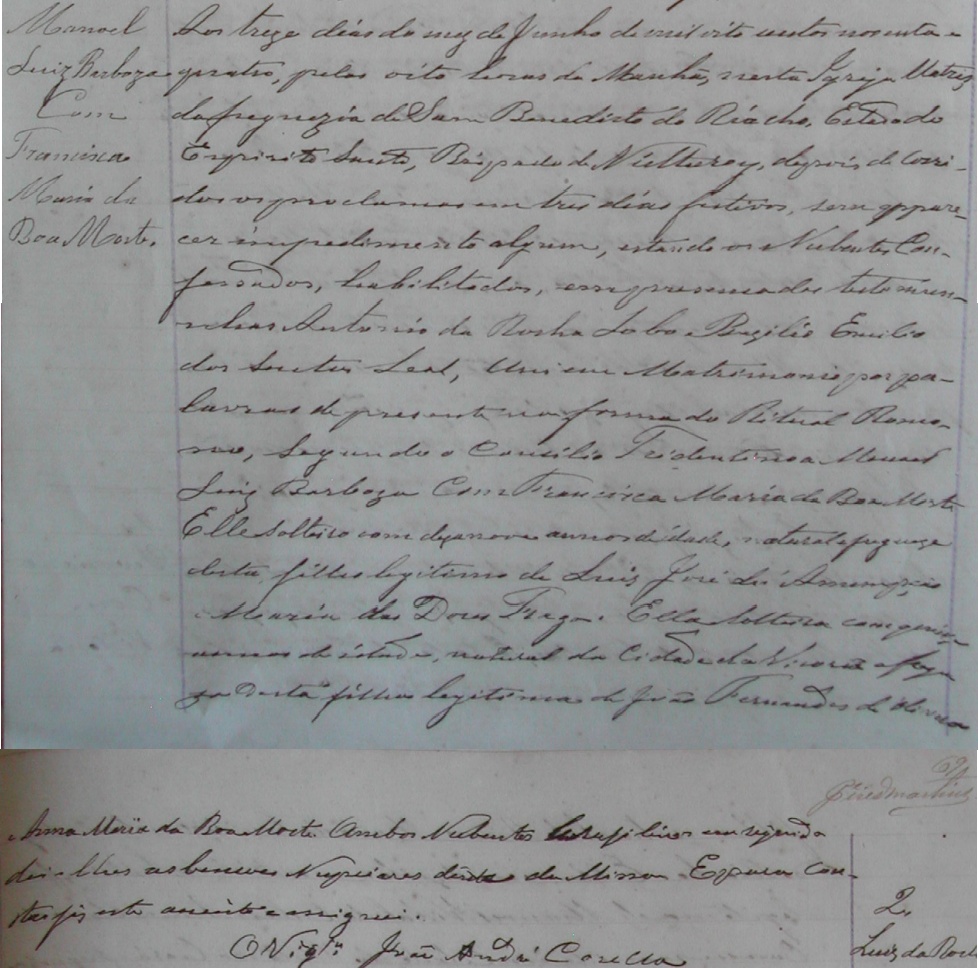 Manoel
Luiz Barboza
Com
Francisca
Maria da
Boa Morte.
Aos treze dias do mez de Junho de mil oito centos noventa e
quatro, pelas oito horas da Manhã, nesta Igreja Matriz
da freguezia de Sam Benedicto do Riacho, Estado do
Espirito Santo, Bispado de Nictheroy, depois de corri-
dos os proclamas em tres dias festivos, sem appare-
cer impedimento algum, estando os Nubentes Con-
fessados, habilitados, em presença das testemu-
nhas Antonio da Rocha Lobo e Bazilio Emilio
dos Santos Leal, Uni em Matrimonio por pa-
lavras de presente na forma do Ritual Roma-
no, Segundo o Concilio Tridentino a Manoel
Luiz Barboza Com Francisca Maria da Boa Morte
Elle solteiro com dezanove annos de idade, natural e freguez
desta filho legitimo de Luiz José de
e Maria das Dores Fraga. Ella solteira com quinze
annos de idade, natural da Cidade da Victoria e fregue-
za desta filha legitima de João Fernandes de Oliveira
69
Anna Maria da Boa Morte. Ambos Nubentes em seguida
dei-lhes as bençoes Nupciares da Missa. E para Con-
star fiz este assento e assignei.
O Vigr.º João André Casella
2.
Luiz da Roch